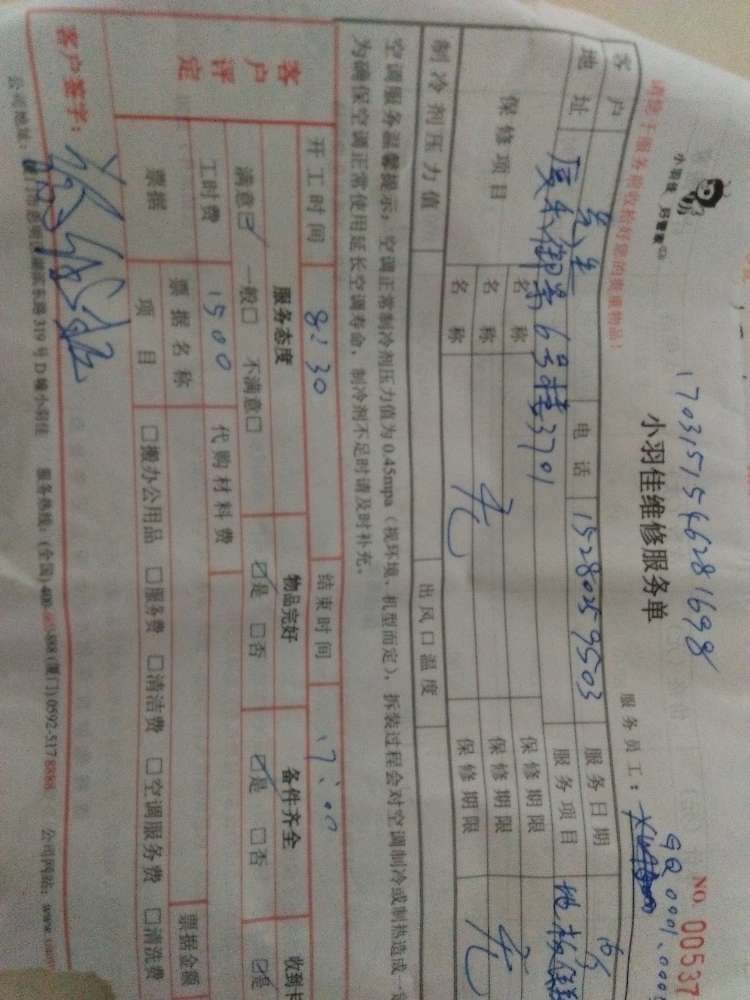 小羽佳 好管家
请您于服务前收拾好您的贵重物品！
1703151546281698
小羽佳维修服务单
NO. 00537
服务员工：
GQ0001.000
客户
电话 15280359503
服务日期
地址
厦禾御景6号楼3701
服务项目 地板
保修项目
名称
保修期限
名称 无
保修期限 无
名称
保修期限
制冷剂压力值
出风口温度
空调服务温馨提示：空调正常制冷剂压力值为0.45mpa（视环境、机型而定），拆装过程会对空调制冷或制热造成一
为确保空调正常使用延长空调寿命，制冷剂不足时请及时补充。
开工时间 8:30 结束时间 17:00
客户评定
服务态度 物品完好 备件齐全
满意☑ 一般□ 不满意□ ☑是 □否 ☑是 □否 ☑是
工时费 1500 代购材料费
票据 票据名称 票据金额
项目 □搬办公用品 □服务费 □清洁费 □空调服务费 □清洗费
客户签字：
公司地址： 319号D幢小羽佳 服务热线：(全国)400- -888 (厦门)0592-5178888 公司网站：www.